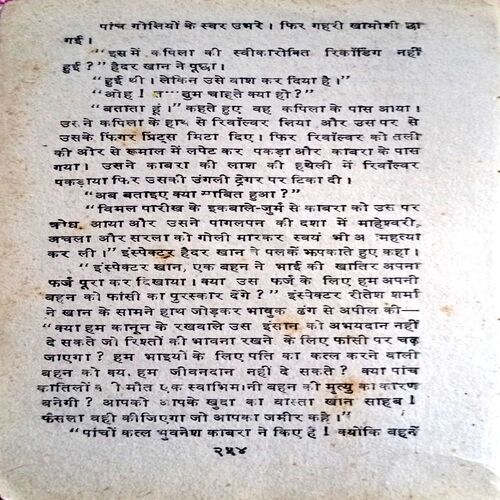 पांच गोलियों के स्वर उभरे। फिर गहरी खामोशी छा
गई।
"इसमें कपिला की स्वीकारोक्ति रिकॉर्डिंग नहीं
हुई?" हैदर खान ने पूछा।
"हुई थी। लेकिन उसे वाश कर दिया है।"
"ओह! तुम चाहते क्या हो?"
"बताता हूं।" कहते हुए वह कपिला के पास आया।
उसने कपिला के हाथ से रिवॉल्वर लिया और उस पर से
उसके फिंगर प्रिंट्स मिटा दिए। फिर रिवॉल्वर को नली
की ओर से रूमाल में लपेट कर पकड़ा और काबरा के पास
गया। उसने काबरा की लाश की हथेली में रिवॉल्वर
पकड़ाया फिर उसकी उंगली ट्रेगर पर टिका दी।
"अब बताइए क्या साबित हुआ?"
"विमल पारीख के इकबाले-जुर्म से काबरा को उस पर
क्रोध आया और उसने पागलपन की दशा में माहेश्वरी,
अचला और सरला को गोली मारकर स्वयं भी आत्महत्या
कर ली।" इंस्पेक्टर हैदर खान ने पलकें झपकाते हुए कहा।
"इंस्पेक्टर खान, एक बहन ने भाई की खातिर अपना
फर्ज पूरा कर दिखाया। क्या उस फर्ज के लिए हम अपनी
बहन को फांसी का पुरस्कार देंगे?" इंस्पेक्टर रीतेश शर्मा
ने खान के सामने हाथ जोड़कर भावुक ढंग से अपील की—
"क्या हम कानून के रखवाले उस इंसान को अभयदान नहीं
दे सकते जो रिश्तों की भावना रखने के लिए फांसी पर चढ़
जाएगा? हम भाइयों के लिए पति का कत्ल करने वाली
बहन को क्या, हम जीवनदान नहीं दे सकते? क्या पांच
कातिलों की मौत एक स्वाभिमानी बहन की मृत्यु का कारण
बनेगी? आपको आपके खुदा का वास्ता खान साहब!
फैसला वही कीजिएगा जो आपका जमीर कहे।"
"पांचों कत्ल भुवनेश काबरा ने किए हैं! क्योंकि बहनें
२५४